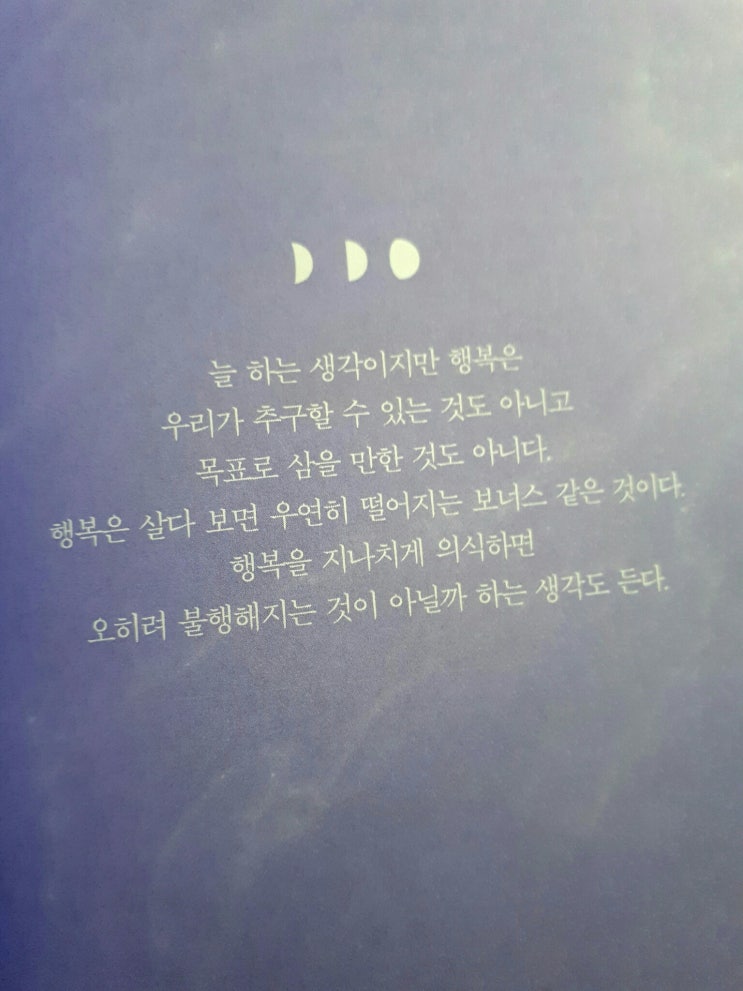 늘 하는 생각이지만 행복은
우리가 추구할 수 있는 것도 아니고
목표로 삼을 만한 것도 아니다.
행복은 살다 보면 우연히 떨어지는 보너스 같은 것이다.
행복을 지나치게 의식하면
오히려 불행해지는 것이 아닐까 하는 생각도 든다.